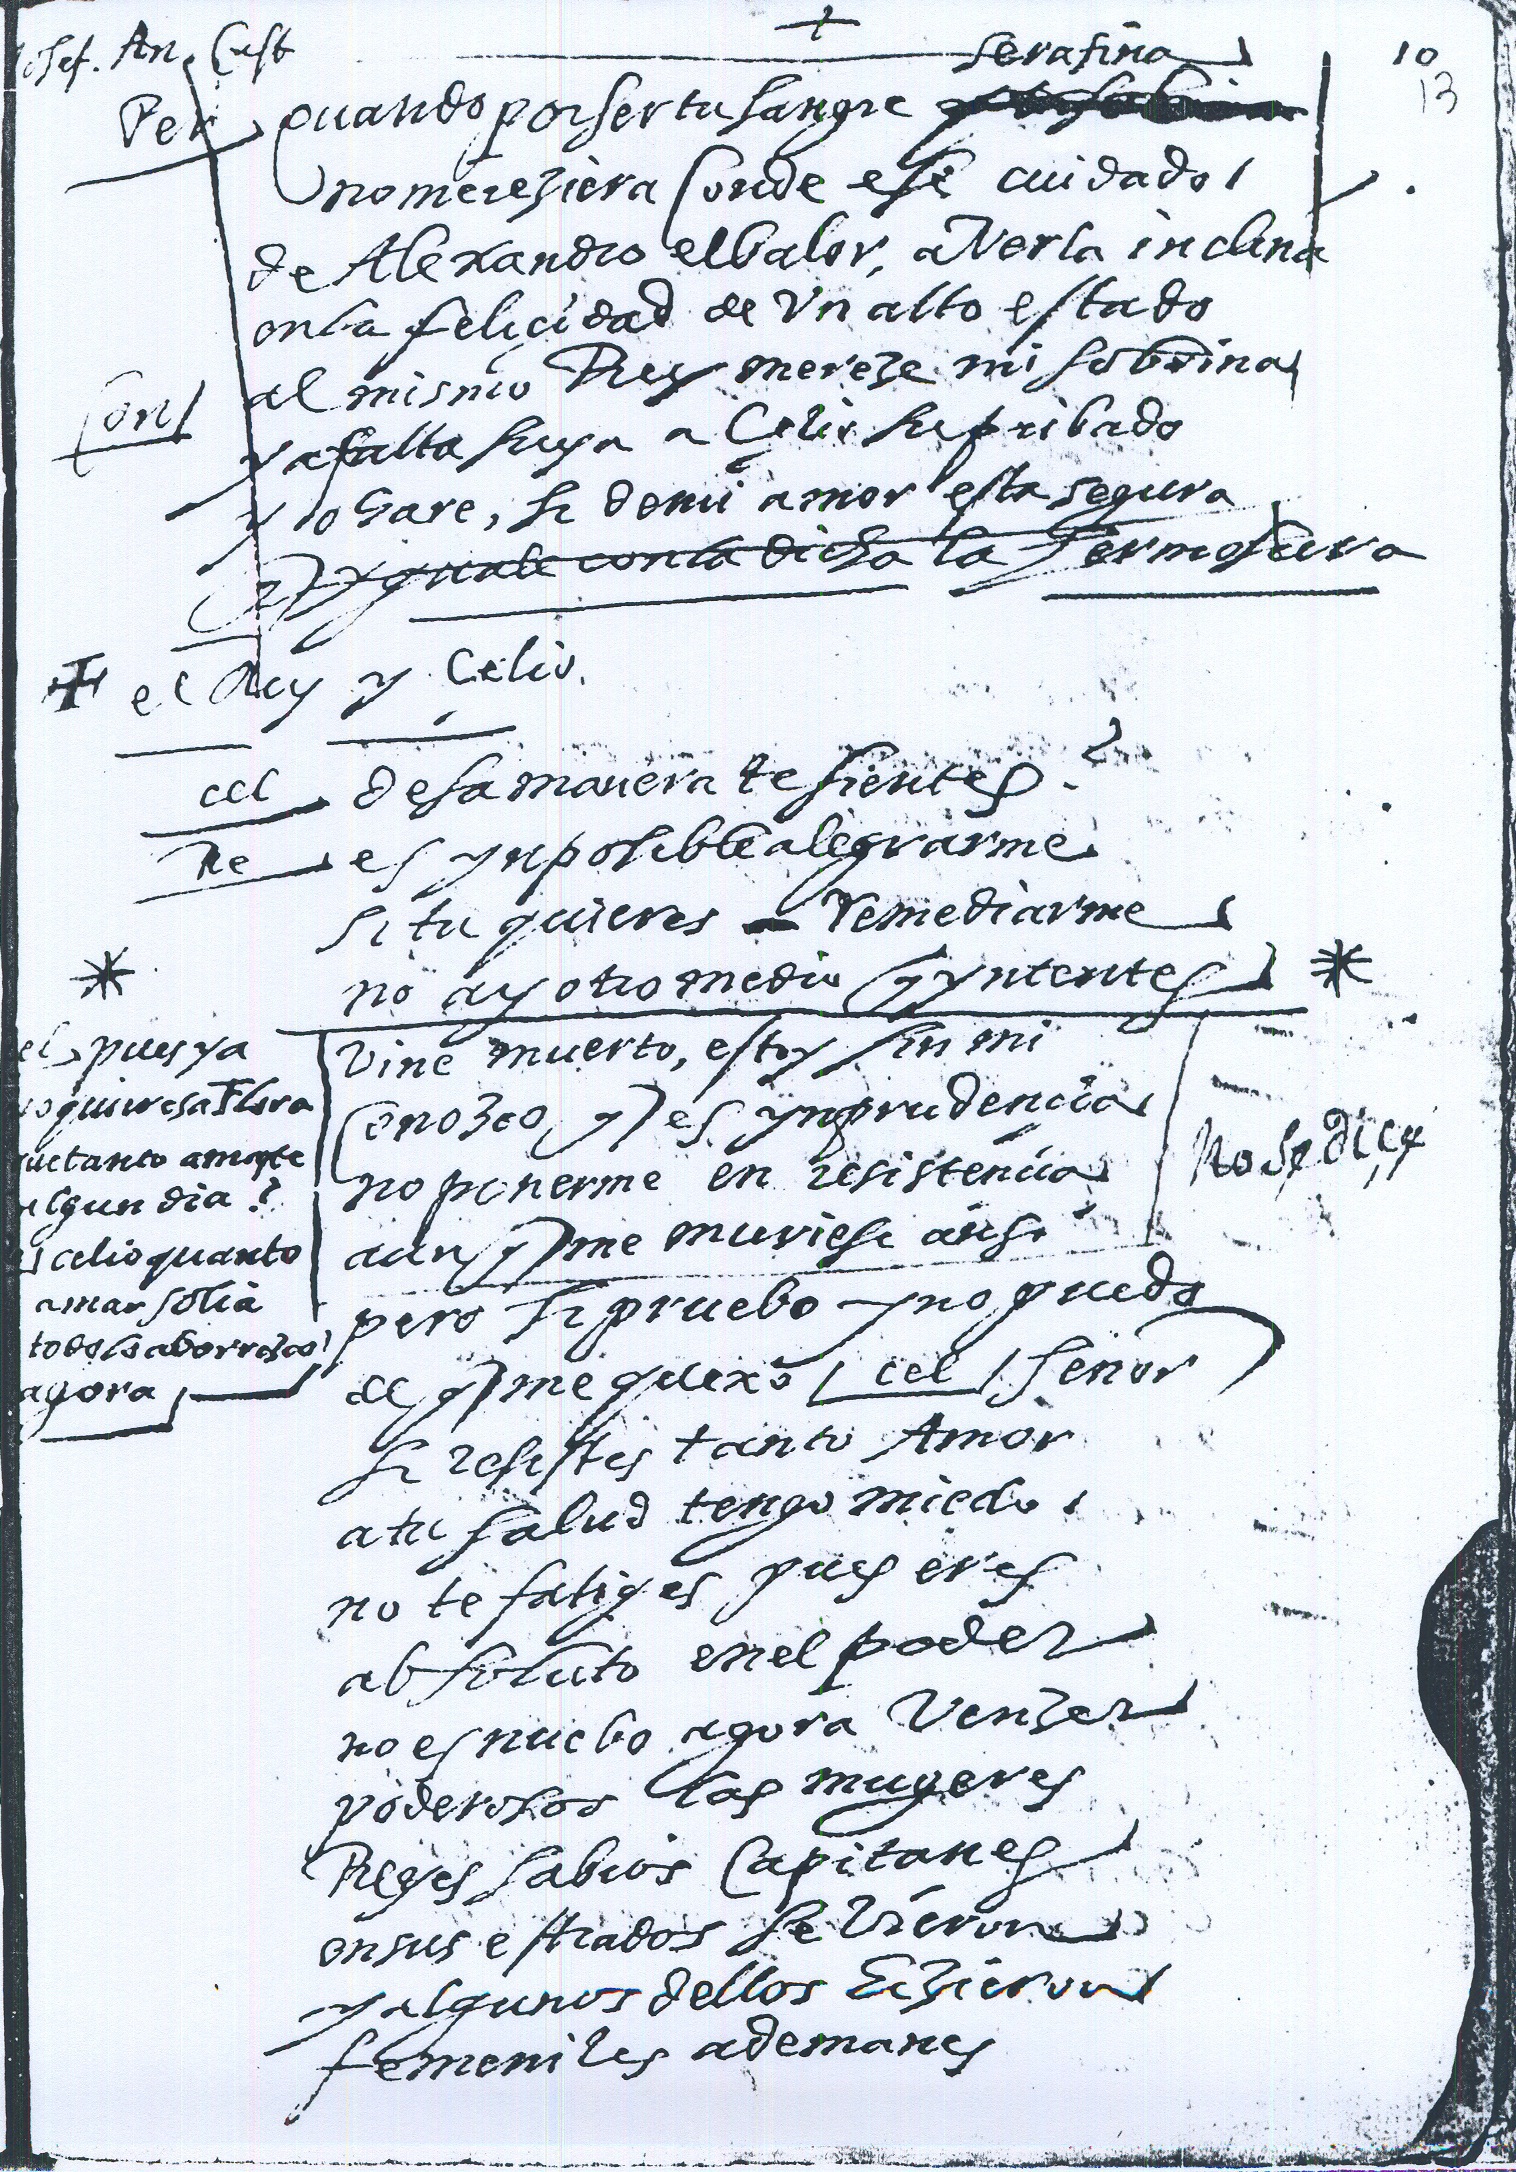 Josef. An. Cust
+
Serafina
10
13
Per quando por ser tu sangre
no mereziera Conde ese cuidado
de Alexandro el balor, a Verla inclina
en la felicidad de Un alto estado
Con al mismo Rey mereze mi sobrina
y a falta suya a Celio su pribado
yo hare, si de mi amor esta segura
q yguale con la dicha la hermosura
el Rey y Celio.
cel desa manera te sientes?
Re es ynposible alegrarme
si tu quieres remediarme
no ay otro medio q yntentes
el pues ya
no quieres a Flora
que tanto amaste
algun dia?
celio quanto
amar solia
todo lo aborrezco
agora
Vine muerto, estoy sin mi
Conozco q es ynprudencia
no ponerme en resistencia
aunq me muriese ansi
No se dice
pero si pruebo y no puedo
de q me quexo cel señor
si resistes tanto Amor
a tu salud tengo miedo
no te fatiges pues eres
absoluto en el poder
no es nuebo agora Venzer
poderosos las mugeres
Reyes sabios Capitanes
en sus estrados se Vieron
y algunos dellos hizieron
femeniles ademanes